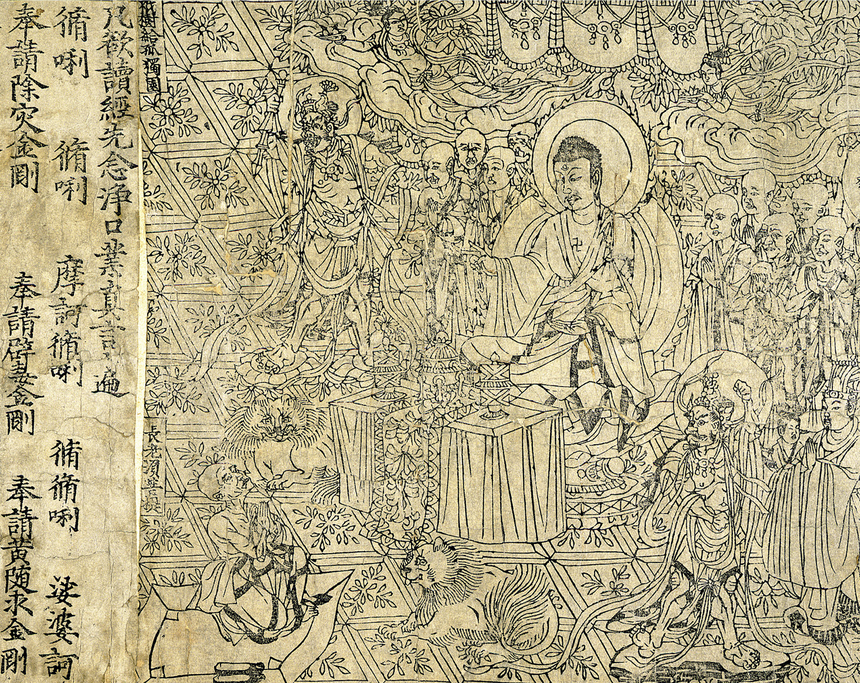 祇樹給孤獨園
長老須菩提
凡欲讀經先念浄口業真言一遍
脩唎 脩唎 摩訶脩唎 脩脩唎 娑婆訶
奉請除灾金剛 奉請辟毒金剛 奉請黃随求金剛